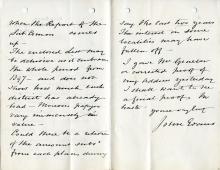 When the Report of the
Sub Comm comes
up -
The enclosed list may
be defective not embrace
the whole period from
1847 - and does not
show how much each
district has already
had - Museum papers
vary immensely in
value.
Could there be a return
of the amount sent
from each place during
say the last two years
The interest in some
localities may have
fallen off -
I gave Mr
a corrected proof of
my Address yesterday
I shall want to see
a final proof. In
haste
Yours truly
John Evans